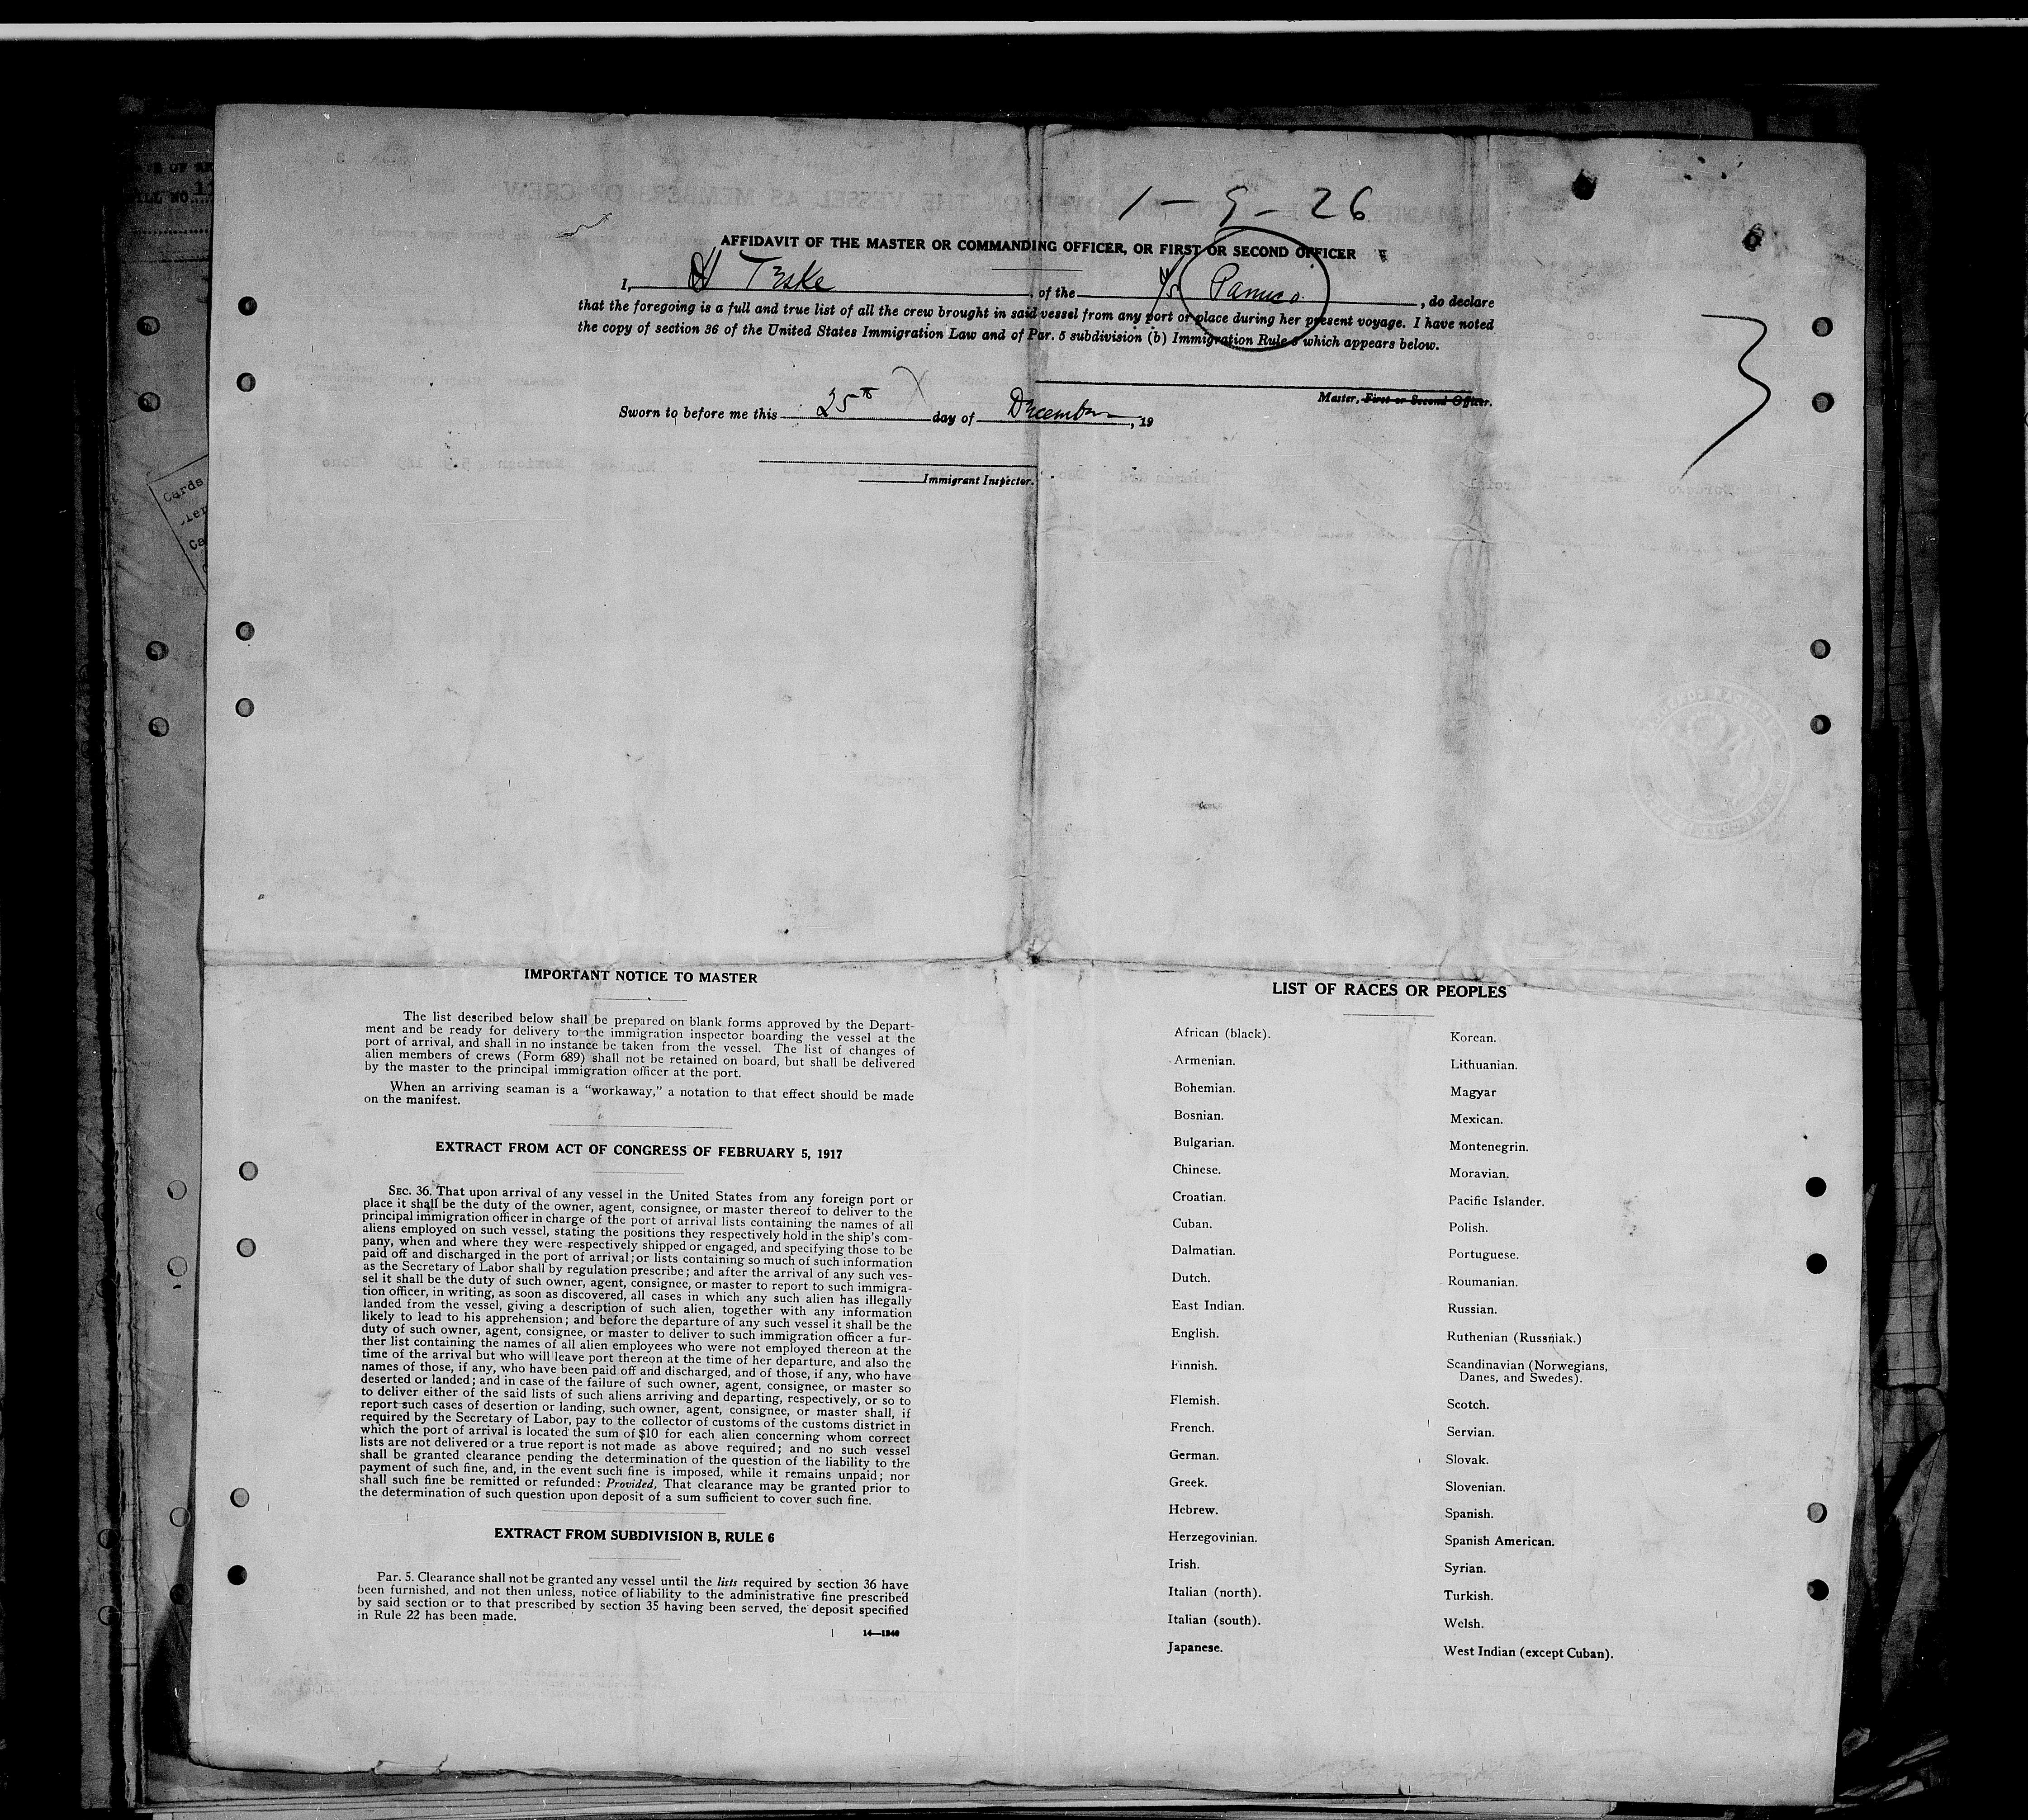 1-9-26
AFFIDAVIT OF THE MASTER OR COMMANDING OFFICER, OR FIRST OR SECOND OFFICER
I, H Teske, of the S/S Panuco, do declare
that the foregoing is a full and true list of all the crew brought in said vessel from any port or place during her present voyage. I have noted
the copy of section 36 of the United States Immigration Law and of Par. 5 subdivision (b) Immigration Rule 6 which appears below.
Master, First or Second Officer.
Sworn to before me this 25th day of December, 19
Immigrant Inspector.
3
Cards
IMPORTANT NOTICE TO MASTER
The list described below shall be prepared on blank forms approved by the Depart-
ment and be ready for delivery to the immigration inspector boarding the vessel at the
port of arrival, and shall in no instance be taken from the vessel. The list of changes of
alien members of crews (Form 689) shall not be retained on board, but shall be delivered
by the master to the principal immigration officer at the port.
When an arriving seaman is a "workaway," a notation to that effect should be made
on the manifest.
EXTRACT FROM ACT OF CONGRESS OF FEBRUARY 5, 1917
SEC. 36. That upon arrival of any vessel in the United States from any foreign port or
place it shall be the duty of the owner, agent, consignee, or master thereof to deliver to the
principal immigration officer in charge of the port of arrival lists containing the names of all
aliens employed on such vessel, stating the positions they respectively hold in the ship's com-
pany, when and where they were respectively shipped or engaged, and specifying those to be
paid off and discharged in the port of arrival; or lists containing so much of such information
as the Secretary of Labor shall by regulation prescribe; and after the arrival of any such ves-
sel it shall be the duty of such owner, agent, consignee, or master to report to such immigra-
tion officer, in writing, as soon as discovered, all cases in which any such alien has illegally
landed from the vessel, giving a description of such alien, together with any information
likely to lead to his apprehension; and before the departure of any such vessel it shall be the
duty of such owner, agent, consignee, or master to deliver to such immigration officer a fur-
ther list containing the names of all alien employees who were not employed thereon at the
time of the arrival but who will leave port thereon at the time of her departure, and also the
names of those, if any, who have been paid off and discharged, and of those, if any, who have
deserted or landed; and in case of the failure of such owner, agent, consignee, or master so
to deliver either of the said lists of such aliens arriving and departing, respectively, or so to
report such cases of desertion or landing, such owner, agent, consignee, or master shall, if
required by the Secretary of Labor, pay to the collector of customs of the customs district in
which the port of arrival is located the sum of $10 for each alien concerning whom correct
lists are not delivered or a true report is not made as above required; and no such vessel
shall be granted clearance pending the determination of the question of the liability to the
payment of such fine, and, in the event such fine is imposed, while it remains unpaid; nor
shall such fine be remitted or refunded: Provided, That clearance may be granted prior to
the determination of such question upon deposit of a sum sufficient to cover such fine.
EXTRACT FROM SUBDIVISION B, RULE 6
Par. 5. Clearance shall not be granted any vessel until the lists required by section 36 have
been furnished, and not then unless, notice of liability to the administrative fine prescribed
by said section or to that prescribed by section 35 having been served, the deposit specified
in Rule 22 has been made.
14—1240
LIST OF RACES OR PEOPLES
African (black).
Armenian.
Bohemian.
Bosnian.
Bulgarian.
Chinese.
Croatian.
Cuban.
Dalmatian.
Dutch.
East Indian.
English.
Finnish.
Flemish.
French.
German.
Greek.
Hebrew.
Herzegovinian.
Irish.
Italian (north).
Italian (south).
Japanese.
Korean.
Lithuanian.
Magyar
Mexican.
Montenegrin.
Moravian.
Pacific Islander.
Polish.
Portuguese.
Roumanian.
Russian.
Ruthenian (Russniak.)
Scandinavian (Norwegians,
Danes, and Swedes).
Scotch.
Servian.
Slovak.
Slovenian.
Spanish.
Spanish American.
Syrian.
Turkish.
Welsh.
West Indian (except Cuban).